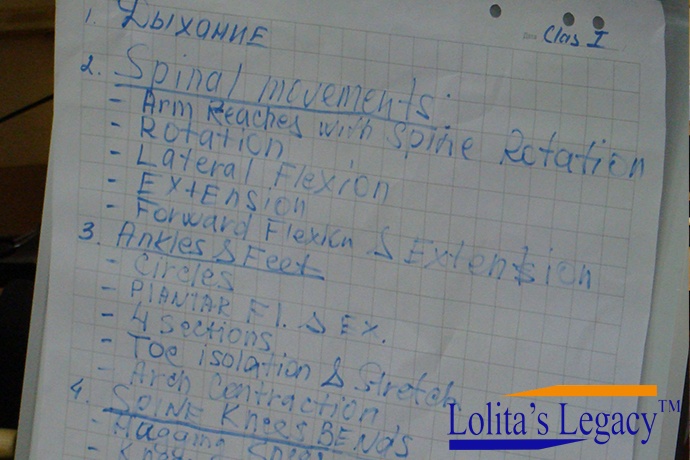 Clas I
1. Дыхание
2. Spinal movements
- Arm Reaches with Spine Rotation
- Rotation
- Lateral Flexion
- Extension
- Forward Flexion & Extension
3. Ankles & Feet
- Circles
- Plantar Fl. & Ex.
- 4 Sections
- Toe isolation & Stretch
- Arch Contraction
4. Spine Knees Bends
Lolita's Legacy™